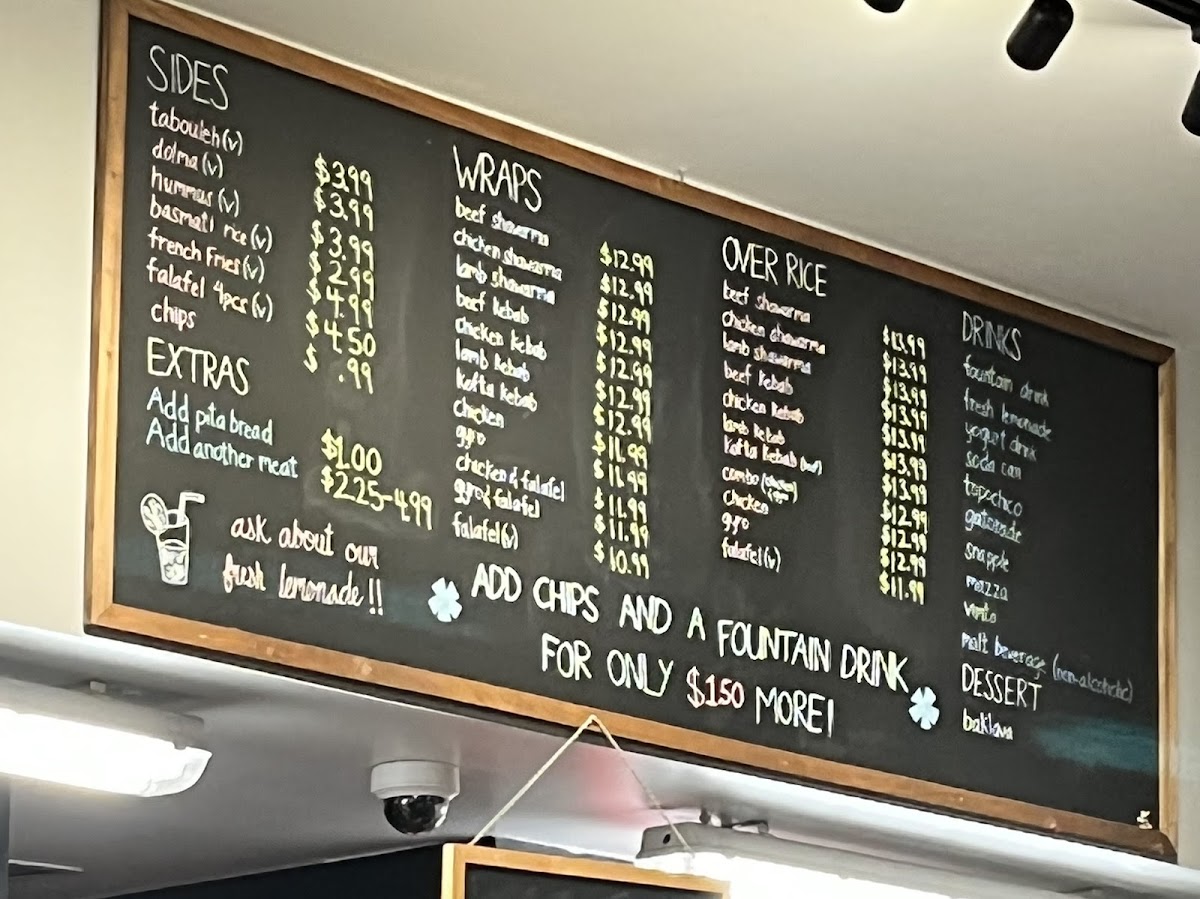 SIDES
tabouleh (v) $3.99
dolma (v) $3.99
hummus (v) $3.99
basmati rice (v) $2.99
french fries (v) $4.99
falafel 4pcs (v) $4.50
chips $ .99
EXTRAS
Add pita bread $1.00
Add another meat $2.25-4.99
ask about our
fresh lemonade!!
WRAPS
beef shawarma $12.99
chicken shawarma $12.99
lamb shawarma $12.99
beef kebab $12.99
chicken kebab $12.99
lamb kebab $12.99
kofta kebab $12.99
chicken $11.99
gyro $11.99
chicken & falafel $11.99
gyro & falafel $11.99
falafel (v) $10.99
OVER RICE
beef shawarma $13.99
chicken shawarma $13.99
lamb shawarma $13.99
beef kebab $13.99
chicken kebab $13.99
lamb kebab $13.99
kofta kebab (beef) $13.99
combo (chicken gyro) $12.99
chicken $12.99
gyro $12.99
falafel (v) $11.99
DRINKS
fountain drink
fresh lemonade
yogurt drink
soda can
topochico
gatorade
snapple
mazza
vimto
malt beverage (non-alcoholic)
DESSERT
baklava
ADD CHIPS AND A FOUNTAIN DRINK
FOR ONLY $1.50 MORE!